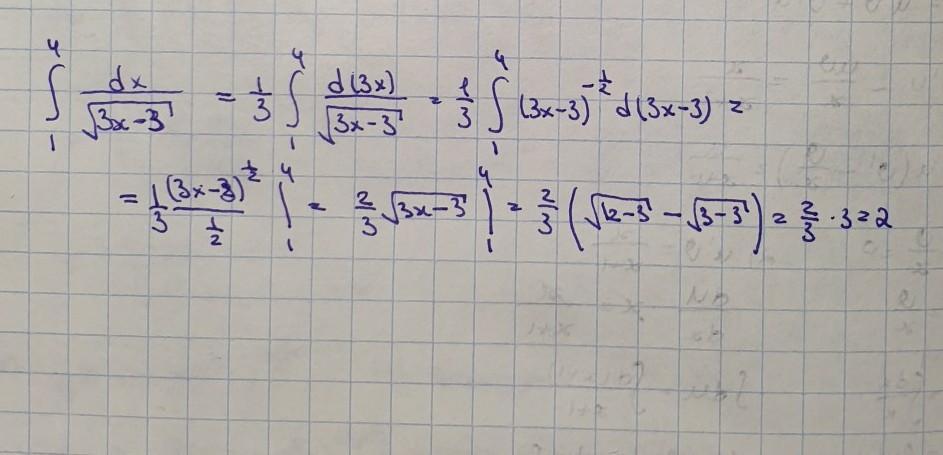 ∫₁⁴ dx/√(3x-3) = 1/3 ∫₁⁴ d(3x)/√(3x-3) = 1/3 ∫₁⁴ (3x-3)^(-1/2) d(3x-3) =
= 1/3 (3x-3)^(1/2)/(1/2) |₁⁴ = 2/3 √(3x-3) |₁⁴ = 2/3 (√(12-3) - √(3-3)) = 2/3 · 3 = 2